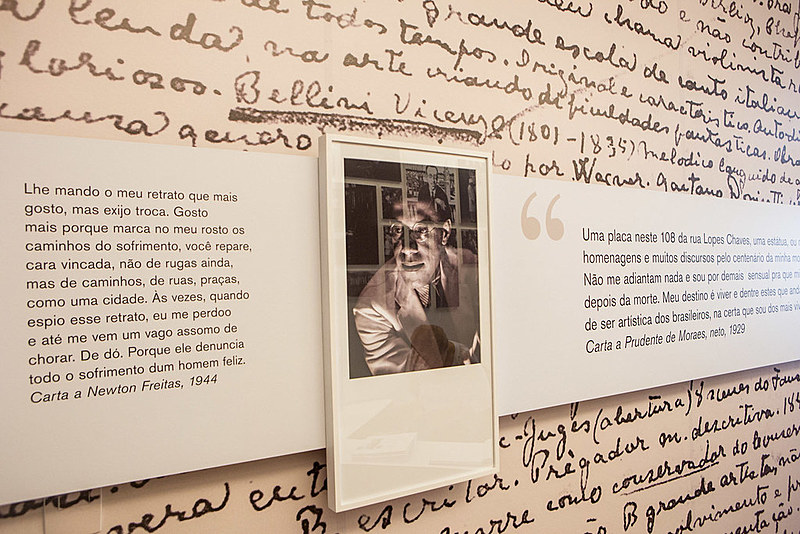 lenda, na arte criando dificuldades fantasticas. Obra
de todos tempos. Original e caracteristico. Autodi
grande escola de canto italiano
chama violinista
e não contri
gloriosos. Bellini Vicenzo (1801-1835) melodico languido de
genero
por Wagner. Gaetano Donizetti
Lhe mando o meu retrato que mais
gosto, mas exijo troca. Gosto
mais porque marca no meu rosto os
caminhos do sofrimento, você repare,
cara vincada, não de rugas ainda,
mas de caminhos, de ruas, praças,
como uma cidade. Às vezes, quando
espio esse retrato, eu me perdoo
e até me vem um vago assomo de
chorar. De dó. Porque ele denuncia
todo o sofrimento dum homem feliz.
Carta a Newton Freitas, 1944
“
Uma placa neste 108 da rua Lopes Chaves, uma estátua, ou
homenagens e muitos discursos pelo centenário da minha
Não me adiantam nada e sou por demais sensual pra que
depois da morte. Meu destino é viver e dentre estes que
de ser artística dos brasileiros, na certa que sou dos mais
Carta a Prudente de Moraes, neto, 1929
Juges (abertura) 8 scenes do Faus
escritor. Prégador m. descritiva.
como conservador do
B grande artista, não